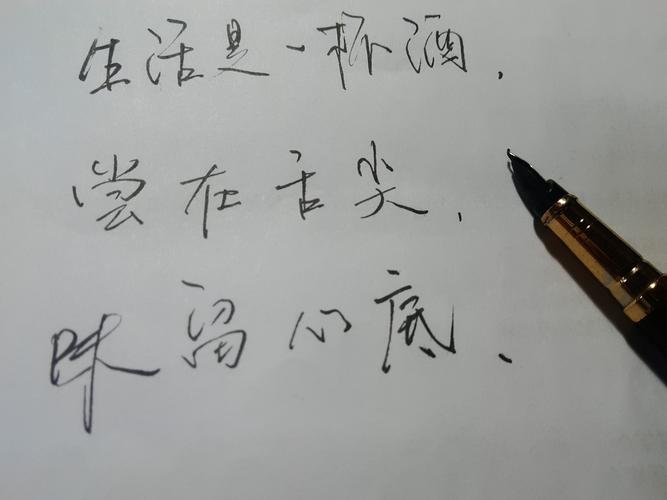 生活是一杯酒,
尝在舌尖,
味留心底、